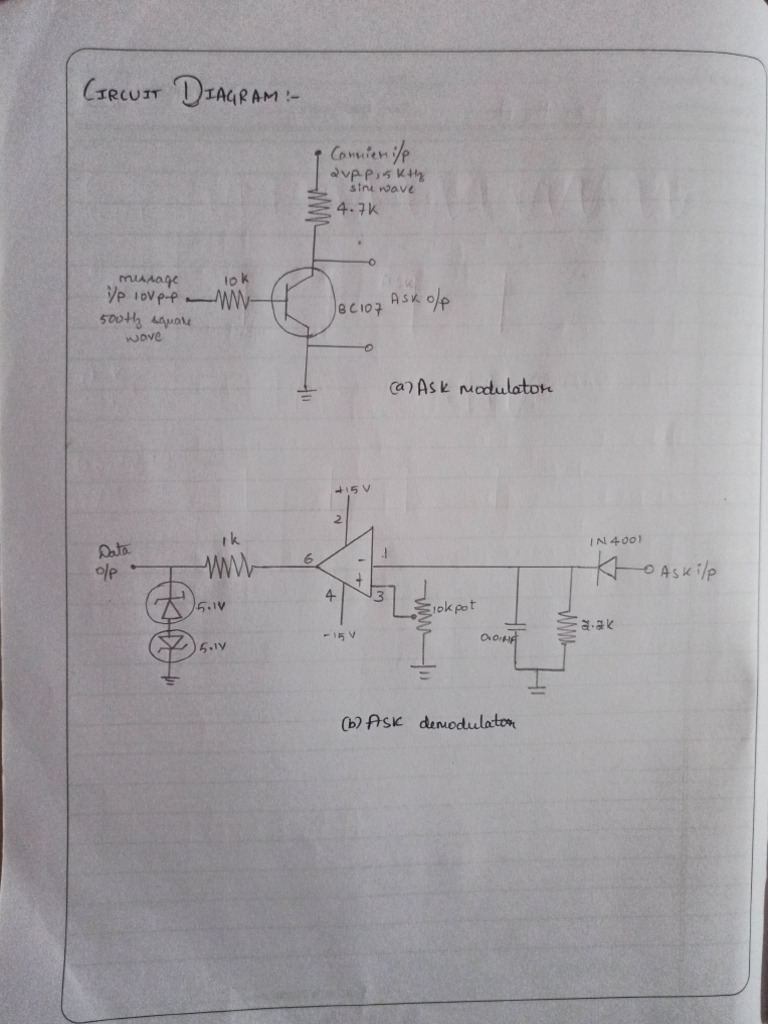 CIRCUIT DIAGRAM :-
Carrier i/p
2Vp-p, 5 KHz
sine wave
4.7K
message
i/p 10Vp-p
500Hz square
wave
10K
BC107
ASK o/p
(a) ASK modulator
+15V
2
Data
o/p
1k
6
-
1
+
3
4
-15V
5.1V
5.1V
10k pot
1N4001
ASK i/p
2.2K
(b) ASK demodulator